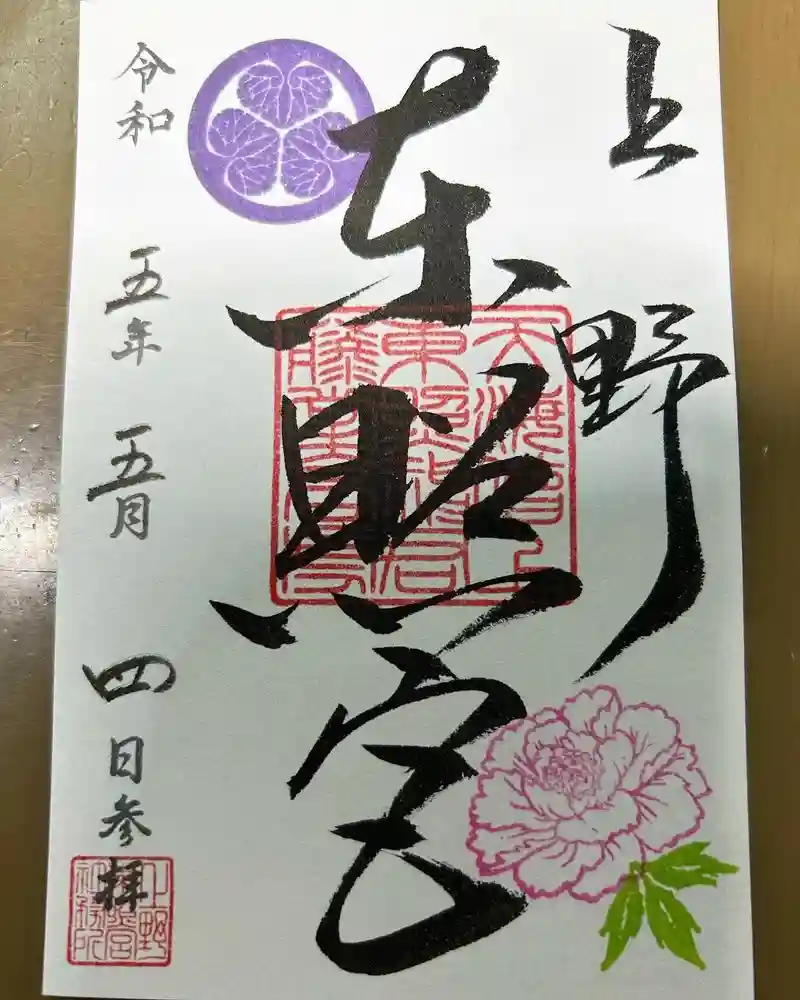 上野
東照宮
令和五年五月四日参拝
上野東照宮社務所